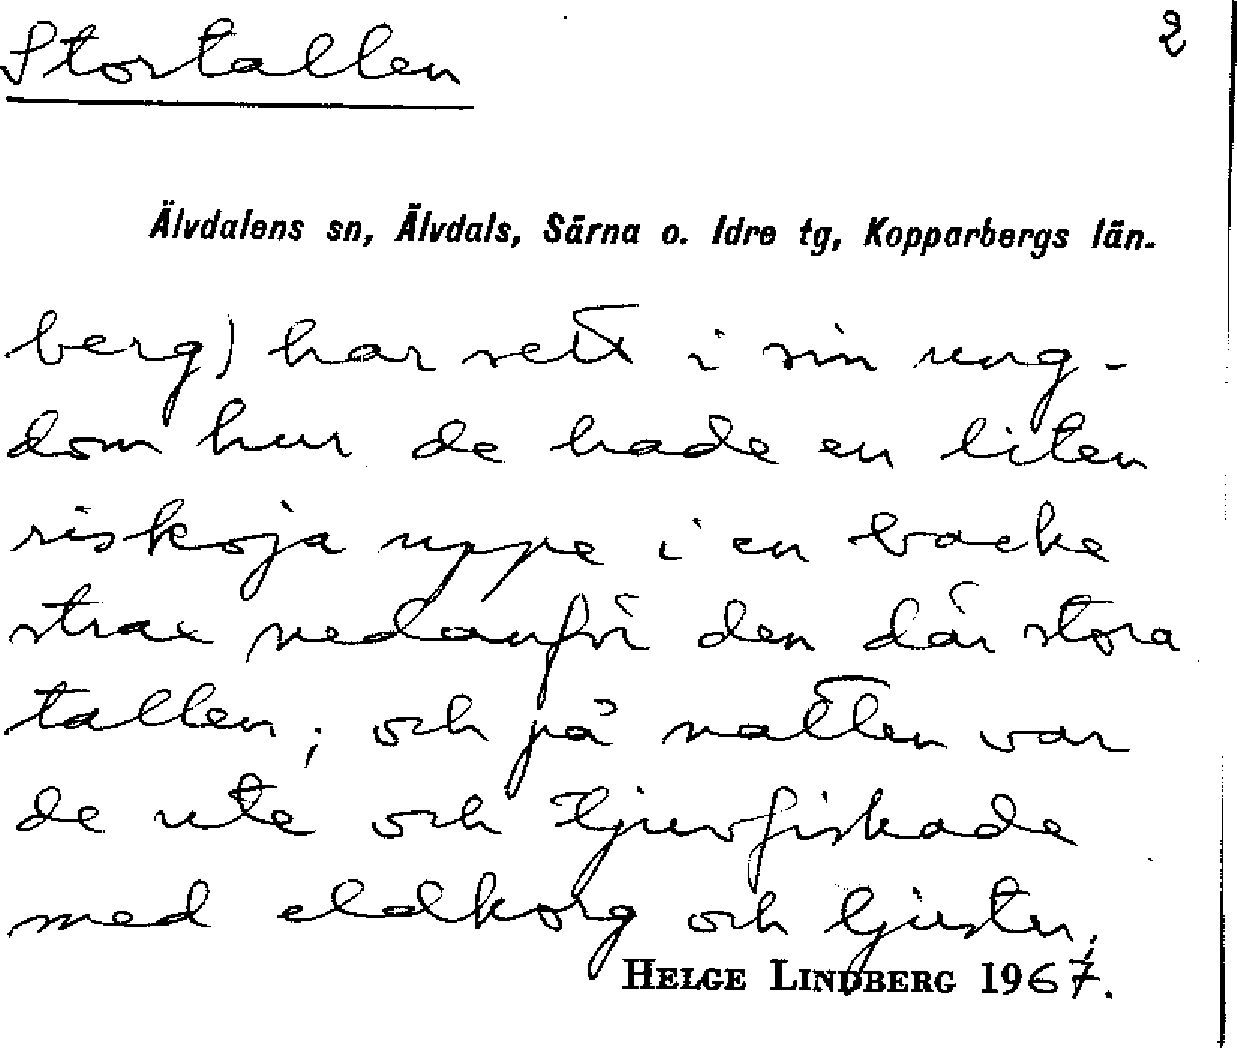 Stortallen 2
Älvdalens sn, Älvdals, Särna o. Idre tg, Kopparbergs län.
berg) har sett i sin ung-
dom hur de hade en liten
riskoja uppe i en backe
strax nedanför den där stora
tallen; och på natten var
de ute och tjuvfiskade
med eldkorg och ljuster;
HELGE LINDBERG 1967.